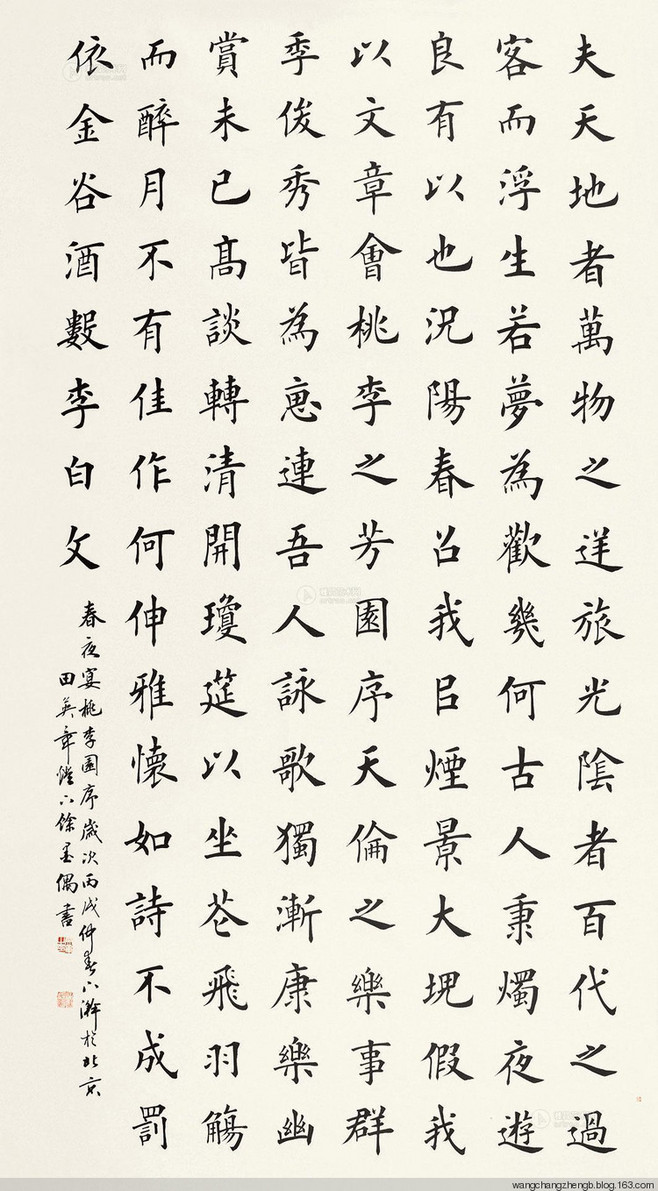 夫天地者萬物之逆旅光陰者百代之過
客而浮生若夢為歡幾何古人秉燭夜遊
良有以也況陽春召我㠯煙景大塊假我
以文章會桃李之芳園序天倫之樂事群
季俊秀皆為惠連吾人詠歌獨漸康樂幽
賞未已高談轉清開瓊筵以坐花飛羽觴
而醉月不有佳作何伸雅懷如詩不成罰
依金谷酒數李白文
春夜宴桃李園序歲次丙戌仲春下澣於北京
田英章燈下餘墨偶書
wangchangzhengb.blog.163.com